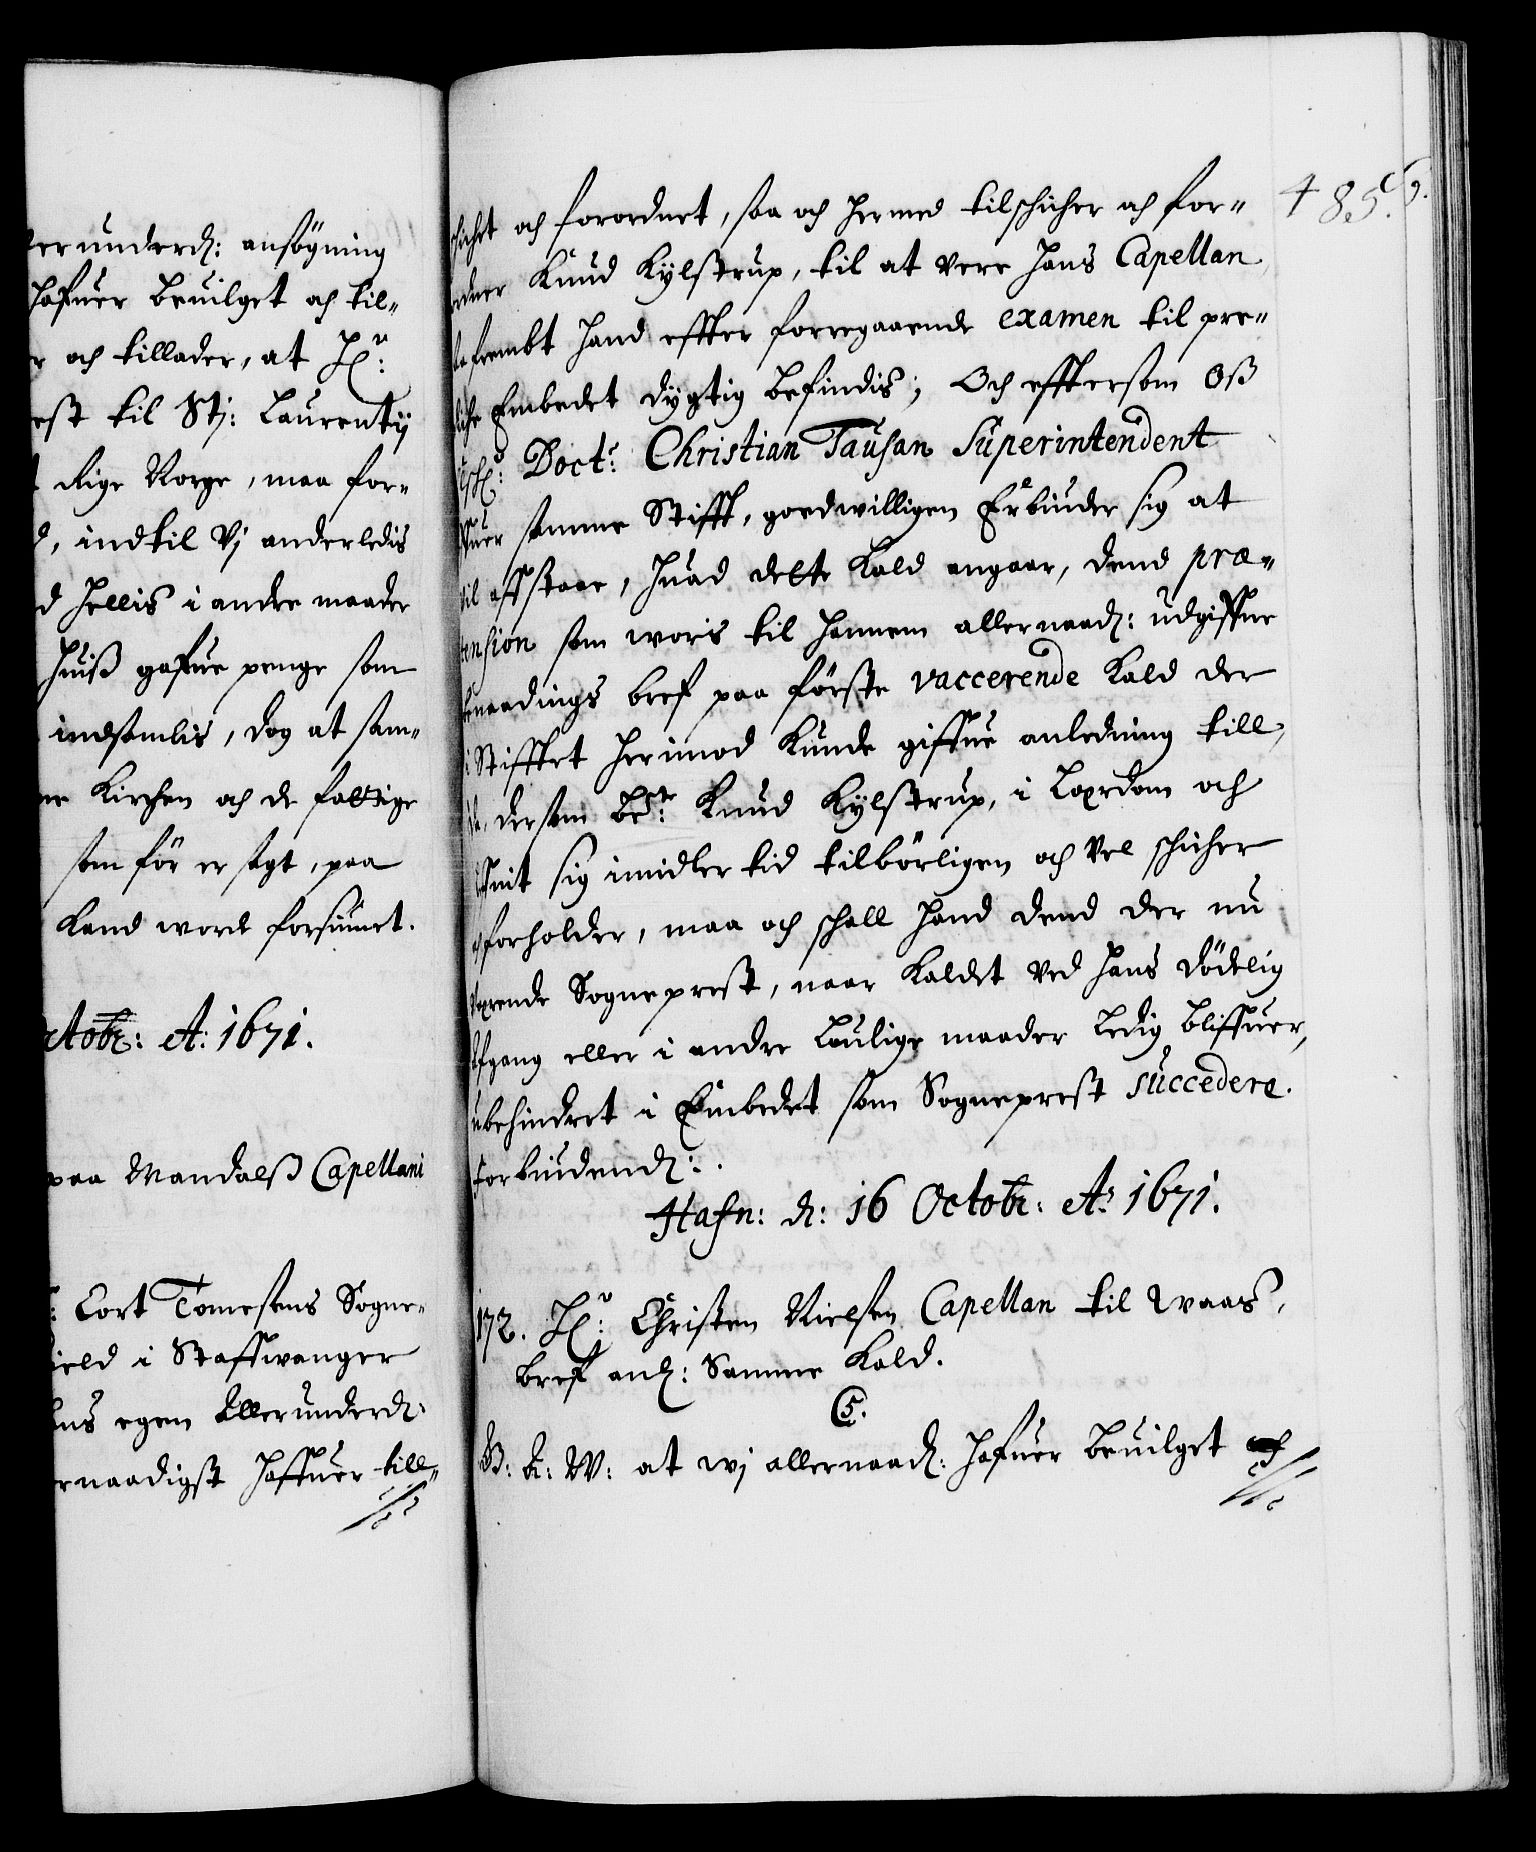 erunderd: ansögning
hafuer beuilget och til-
och tillader, at Hr:
est til Stj: Laurentij
Rige Norge, maa for-
, indtil Vj anderledis
hellis i andre maader
huiß gafue penge som
indsamlis, dog at sam-
Kirchen och de fattige
som før er sagt, paa
Land worde forsiumet.
ctobr: A: 1671.
paa Mandalß Capellani
Cort Tomesens Sogne-
ield i Staffwanger
ens egen Allerunderd:
rnaadigst haffuer till-
485.
schichet och forordnet, saa och hermed tilschicher och for-
ordner Knud Kylstrup, til at vere hans Capellan
frembt hand effter foregaaende examen til pre-
liche Embedet dygtig befindis; Och efftersom Oß
Doctr: Christian Tausan Superintendent
ofuer samme Stifft, goedwilligen Erbiuder sig at
vil affstaae, huad dette Kald angaar, dend præ-
tension som woris til hannem allernaad: udgiffne
benaadings bref paa første vaccerende Kald der
i Stifftet herimod Kunde giffue anledning till,
da, dersom bete: Knud Kylstrup, i Lærdom och
Leffnit sig imidler tid tilbörligen och vel schicher
och forholder, maa och schall hand dend der nu
værende Sogneprest, naar Kaldet ved hans dödelig
afgang eller i andre Loulige maader ledig bliffuer,
ubehindret i Embedet som Sogneprest succedere.
Forbiudend:.
Hafn: d: 16 Octobr: Ao 1671.
172. Hr: Christen Nielsen Capellan til Waas,
bref anl: Samme Kald.
C5.
G: A: W: at wj allernaad: hafuer beuilget och